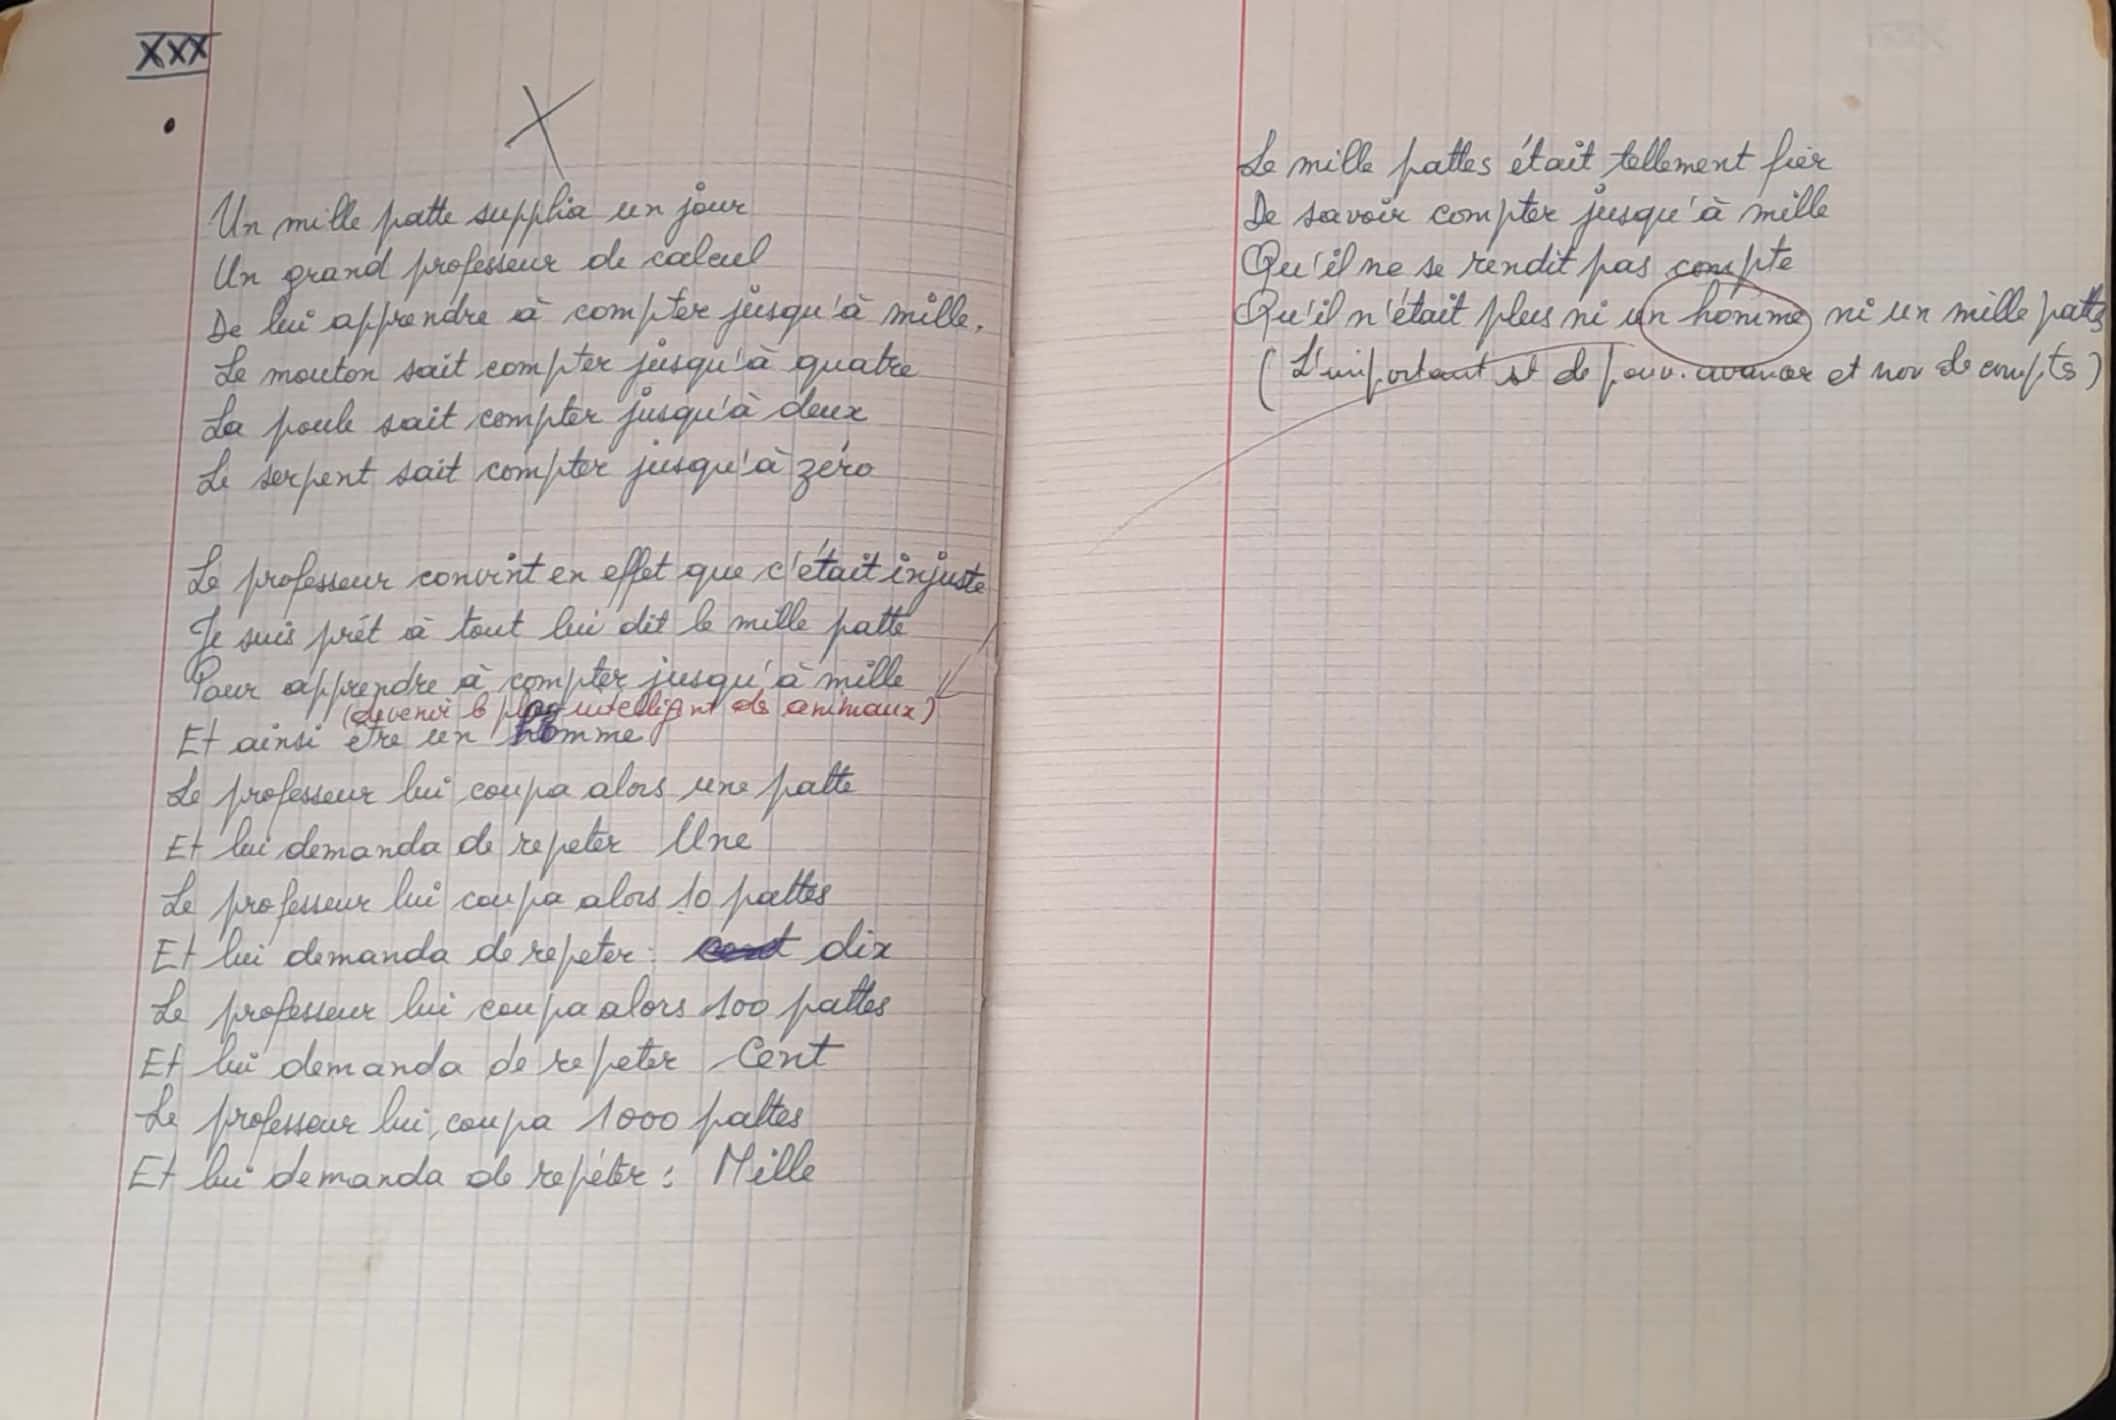 XXX
Un mille patte supplia un jour
Un grand professeur de calcul
De lui apprendre à compter jusqu'à mille.
Le mouton sait compter jusqu'à quatre
La poule sait compter jusqu'à deux
Le serpent sait compter jusqu'à zéro
Le professeur convint en effet que c'était injuste
Je suis prêt à tout lui dit le mille patte
Pour apprendre à compter jusqu'à mille
(devenir le plus intelligent des animaux)
Et ainsi être un homme
Le professeur lui coupa alors une patte
Et lui demanda de repeter Une
Le professeur lui coupa alors 10 pattes
Et lui demanda de repeter : cent dix
Le professeur lui coupa alors 100 pattes
Et lui demanda de repeter Cent
Le professeur lui coupa 1000 pattes
Et lui demanda de repéter : Mille
Le mille pattes était tellement fier
De savoir compter jusqu'à mille
Qu'il ne se rendit pas compte
Qu'il n'était plus ni un homme ni un mille pattes
(L'important est de pouv. avancer et non de compter)